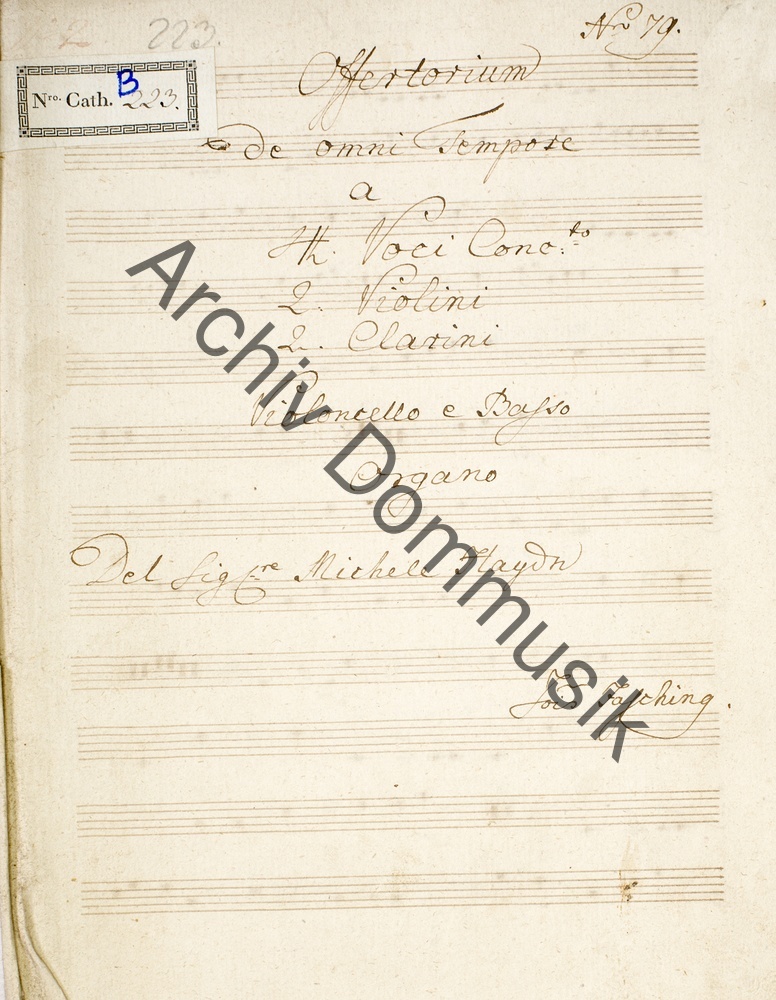 223.
Nro 79.
Nro. Cath. B 223.
Offertorium
de omni Tempore
a
4. Voci Conc:to
2. Violini
2. Clarini
Violoncello e Basso
Organo
Del Sigre Michele Haydn
Fasching.
Archiv Dommusik